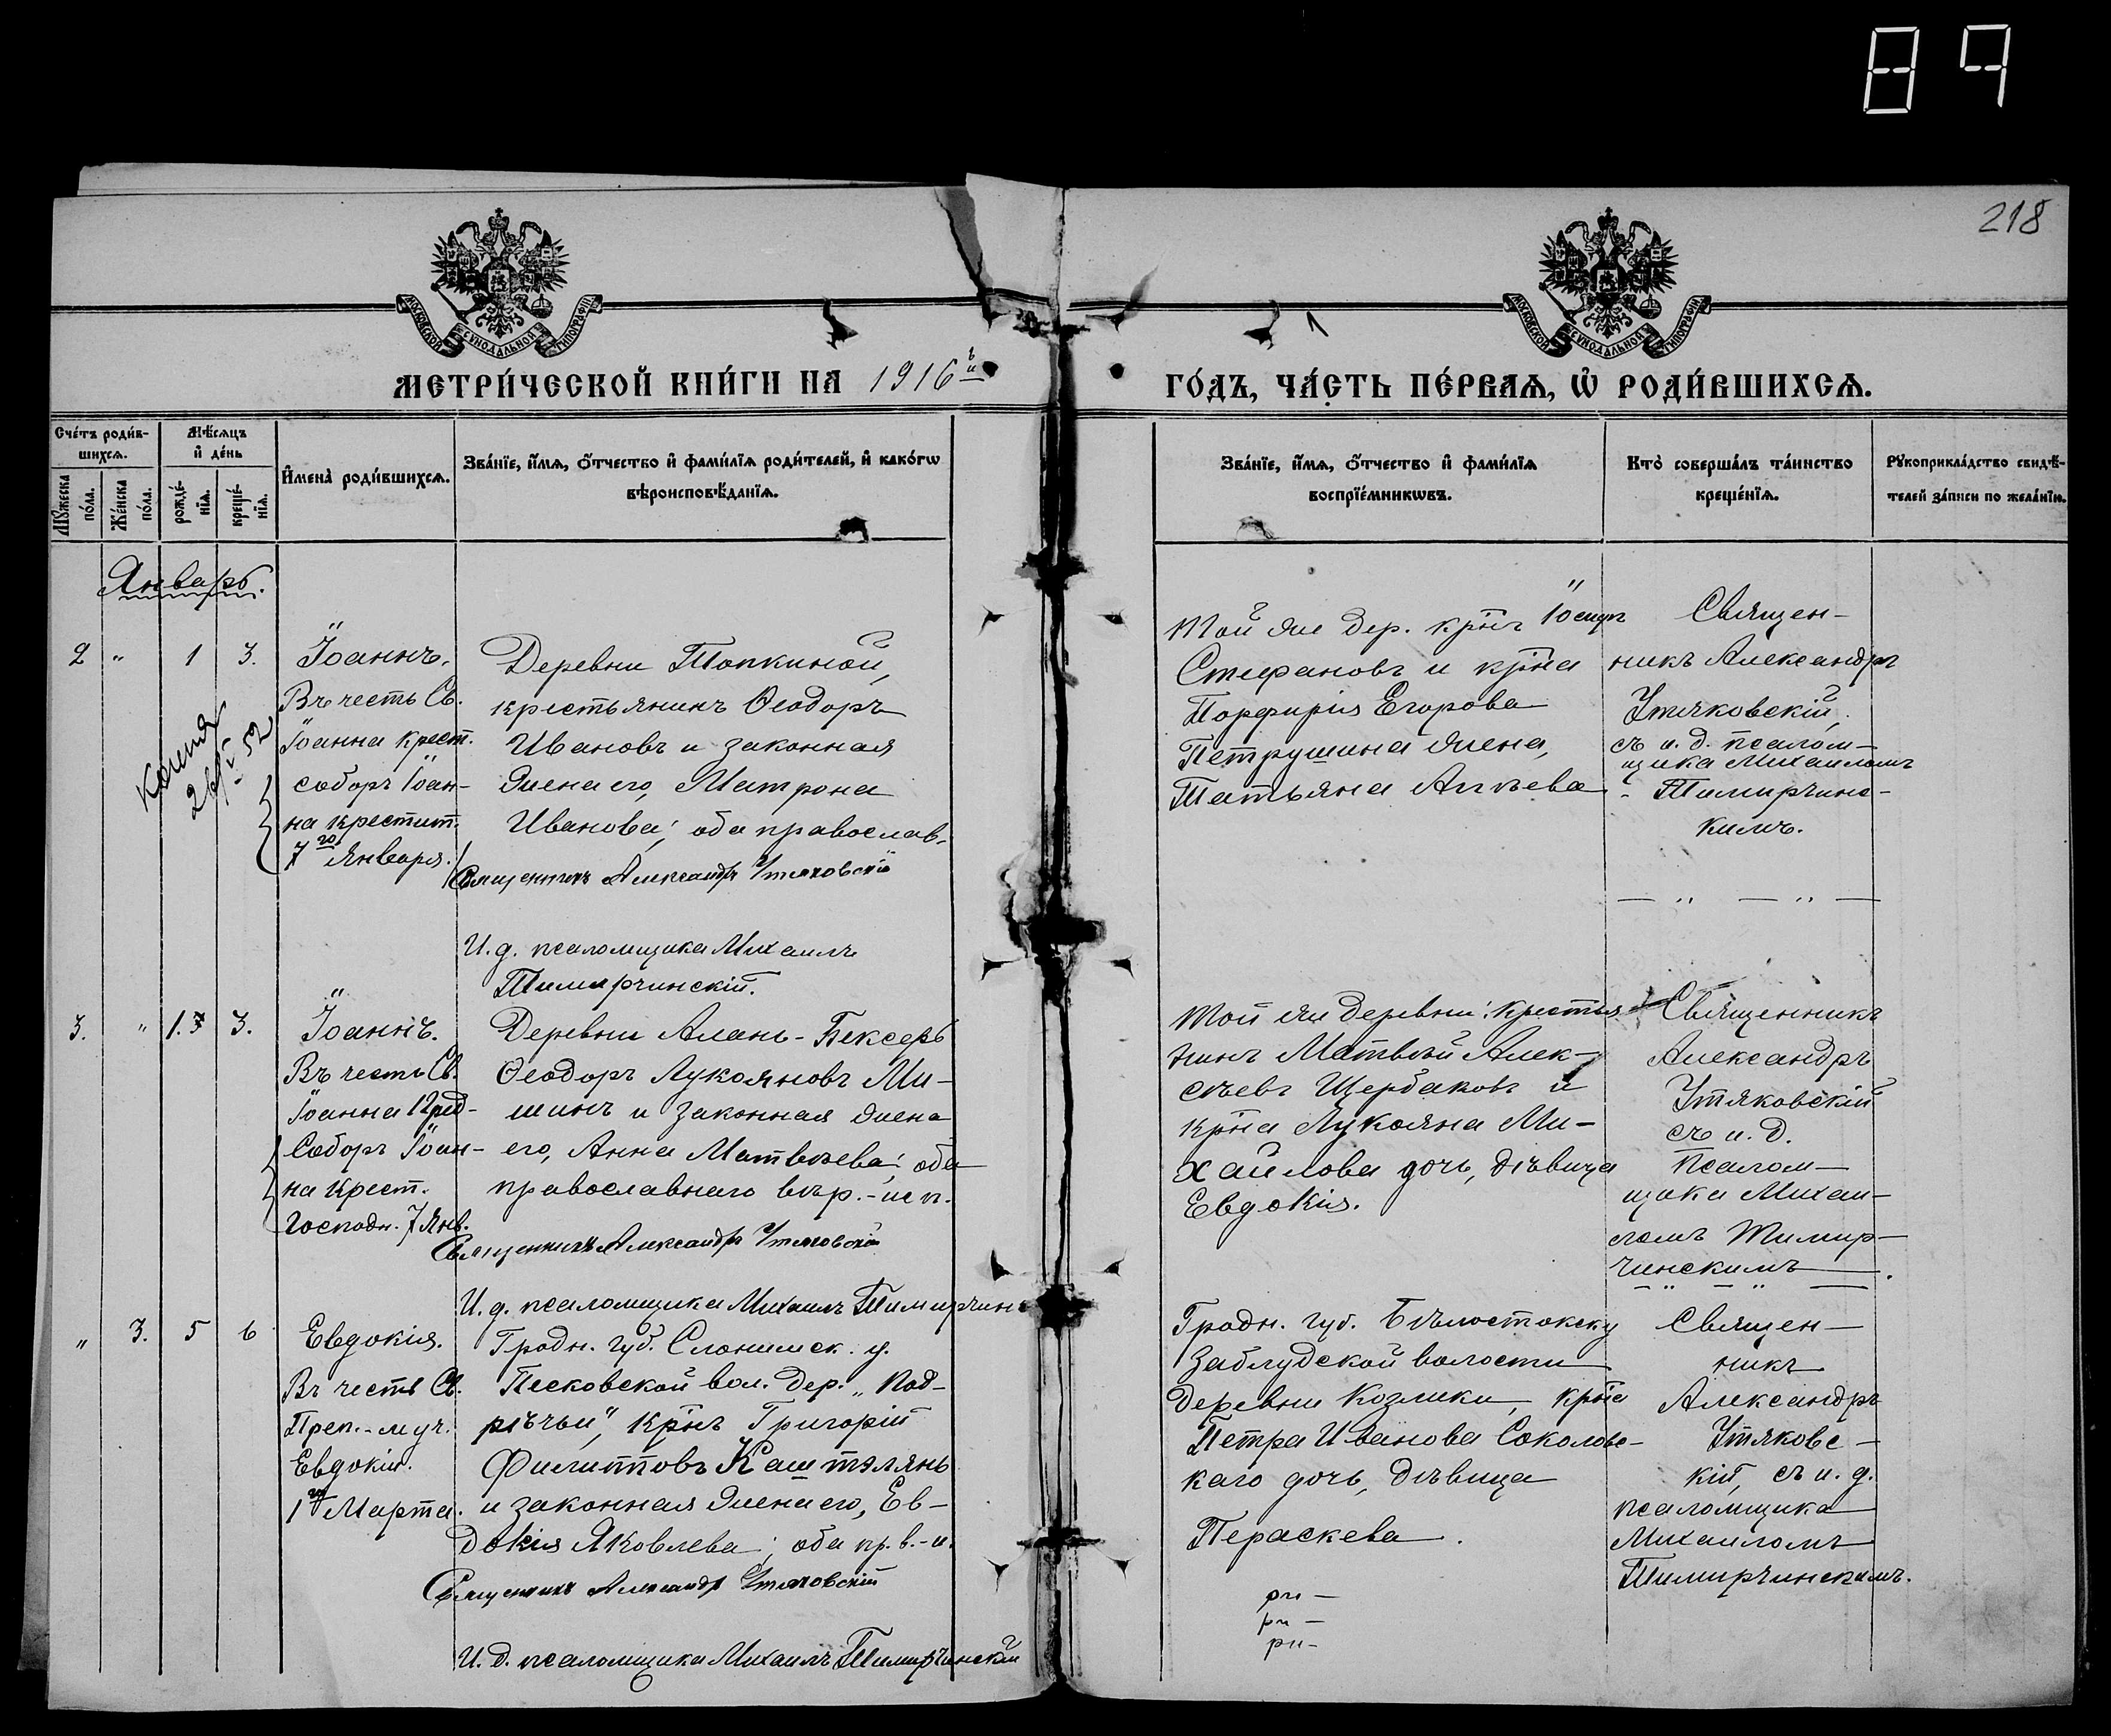 89
218
1
МОСКОВСКОЙ СѴНОДАЛЬНОЙ ТИПОГРАФІИ
МОСКОВСКОЙ СѴНОДАЛЬНОЙ ТИПОГРАФІИ
МЕТРИ́ЧЕСКОЙ КНИ́ГИ НА 1916й ГО́ДЪ, ЧА́СТЬ ПЕ́РВАѦ, Ѡ҆ РОДИ́ВШИХСѦ.
Сче́тъ роди́в-
шихсѧ.
Мѣ́сѧцъ
и҆ де́нь
Мꙋ́жеска по́ла.
Же́нска по́ла.
рожде́-
нїѧ.
креще́-
нїѧ.
И҆мена̀ роди́вшихсѧ.
Зва́нїе, и҆́мѧ, ѻ҆́тчество и҆ фами́лїѧ роди́телей, и҆ како́гѡ
вѣроисповѣ́данїѧ.
Зва́нїе, и҆́мѧ, ѻ҆́тчество и҆ фами́лїѧ
воспрїе́мникѡвъ.
Кто̀ соверша́лъ та́инство
креще́нїѧ.
Рꙋкоприкла́дство свидѣ́-
телей за́писи по жела́нїю.
Январь.
2 " 1 3.
Іоаннъ.
Въ честь Св.
Іоанна Крест.
соборъ Іоан-
на крестит.
7го Января.
Копия
52
Деревни Топкиной,
крестьянинъ Ѳеодоръ
Ивановъ и законная
жена его, Матрона
Иванова; оба православ.
Священникъ Александръ Утяковскій
И. д. псаломщика Михаилъ
Тимирчинскій.
Той же дер. крнъ Іосифъ
Стефановъ и крна
Порфирія Егорова
Петрушина жена,
Татьяна
Священ-
никъ Александръ
Утяковскій,
съ и. д. псалом-
щика Михаиломъ
Тимирчинс-
кимъ.
— " — " —
3. " 1. 3.
Іоаннъ.
Въ честь Св.
Іоанна Пред-
Соборъ Іоан-
на Крест.
Господн. 7 Янв.
Деревни Алань-Бексерь
Ѳеодоръ Лукояновъ Ми-
шинъ и законная жена
его, Анна Матвѣева; оба
православнаго вѣр.-исп.
Священникъ Александръ Утяковскій
И. д. псаломщика Михаилъ Тимирчин
Той же деревни: крестья-
нинъ Матвѣй Алек-
сѣевъ Щербаковъ и
крна Лукояна Ми-
хайлова дочь, дѣвица
Евдокія.
Священникъ
Александръ
Утяковскій
съ и. д.
псалом-
щика Михаи-
ломъ Тимир-
чинскимъ.
— " — " —
" 3. 5 6
Евдокія.
Въ честь Св.
Преп.-муч.
Евдокіи.
1го Марта.
Гродн. губ. Слонимск. у.
Песковской вол. дер. „Под-
рѣчьи", крнъ Григорій
Филипповъ Каштэлянъ
и законная жена его, Ев-
докія Яковлева; оба пр. в.-и.
Священникъ Александръ Утяковскій
И. д. псаломщика Михаилъ Тимирчинскій
Гродн. губ. Бѣлостокск у
Заблудской волости
деревни Козлики, крна
Петра Иванова Соколовс-
каго дочь, дѣвица
Параскева.
ри —
ри —
ри —
Священ-
никъ
Александръ
Утяковс-
кій, съ и. д.
псаломщика
Михаиломъ
Тимирчинскимъ.